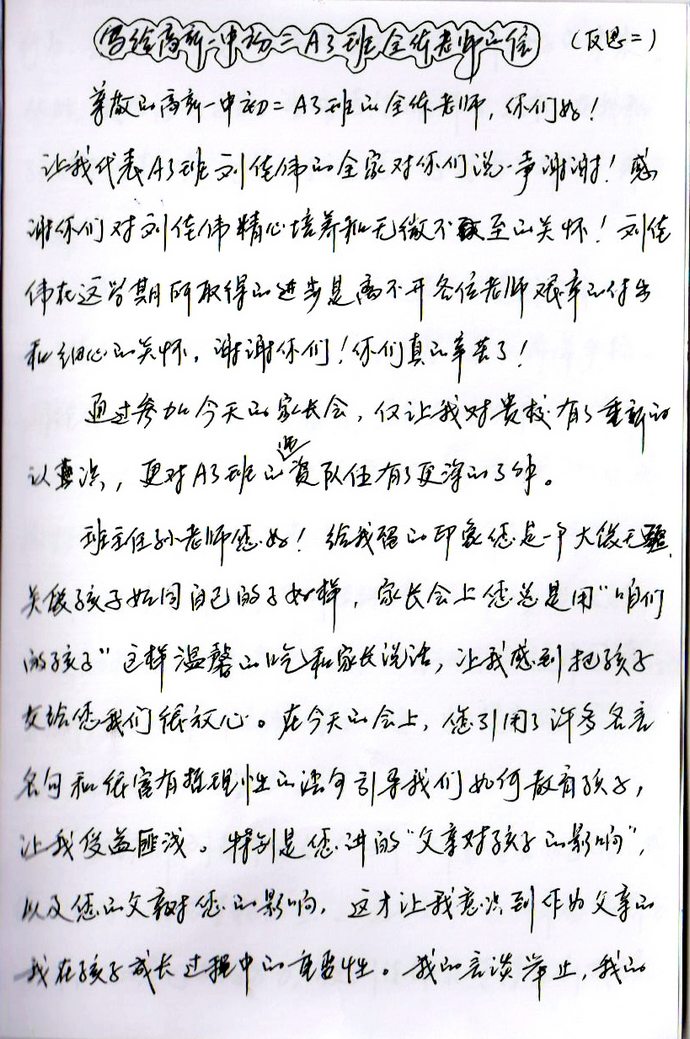 写给高新一中初二A3班全体老师的信 (反思二)
尊敬的高新一中初二A3班的全体老师，你们好！
让我代表A3班刘佳伟的全家对你们说一声谢谢！感
谢你们对刘佳伟精心培养和无微不至的关怀！刘佳
伟在这学期所取得的进步是离不开各位老师艰辛的付出
和细心的关怀，谢谢你们！你们真的辛苦了！
通过参加今天的家长会，仅让我对贵校有了重新的
认识，更对A3班的师资队伍有了更深的了解。
班主任孙老师您好！给我留的印象您是一个大 无
关爱孩子如同自己的子女一样，家长会上您总是用“咱们
的孩子”这样温馨的口吻和家长说话，让我感到把孩子
交给您我们很放心。在今天的会上，您引用了许多名言
名句和很富有哲理性的语句引导我们如何教育孩子，
让我受益匪浅。特别是您讲的“父亲对孩子的影响”，
以及您的父亲对您的影响，这才让我意识到作为父亲的
我在孩子成长过程中的重要性。我的言谈举止，我的